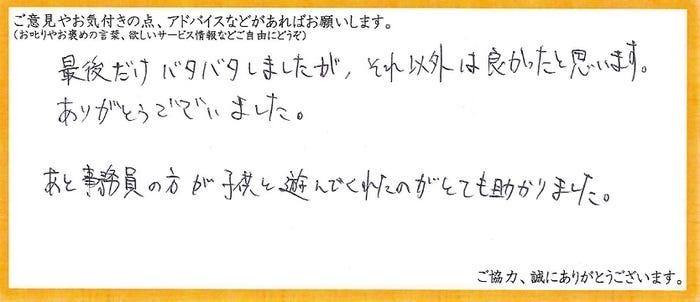 ご意見やお気付きの点、アドバイスなどがあればお願いします。
(お叱りやお褒めの言葉、欲しいサービス情報などご自由にどうぞ)
最後だけバタバタしましたが、それ以外は良かったと思います。
ありがとうございました。
あと事務員の方が子供と遊んでくれたのがとても助かりました。
ご協力、誠にありがとうございます。